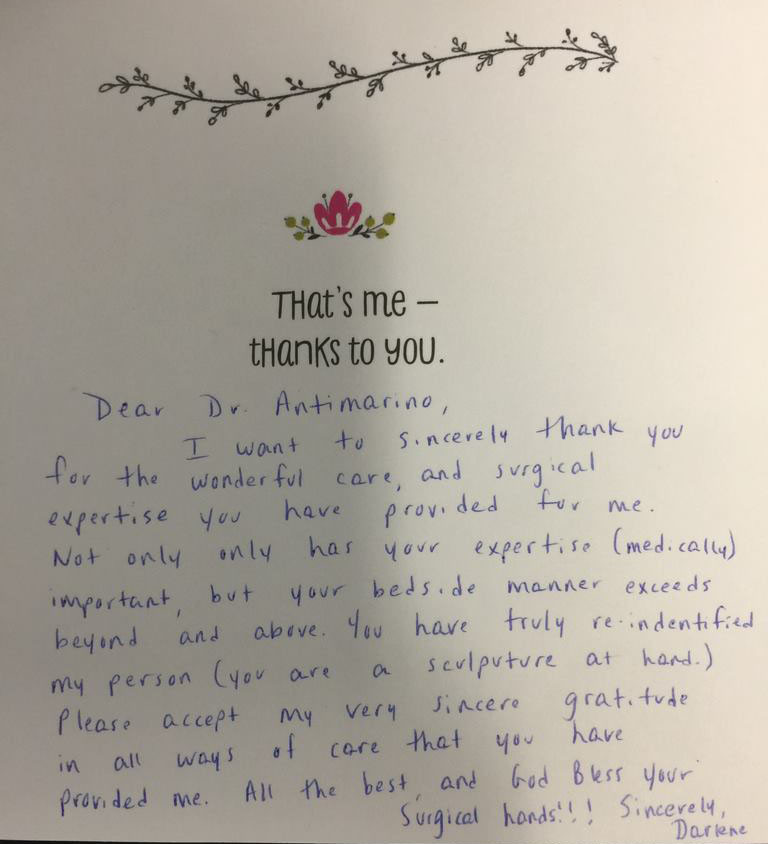 THat's me –
tHanks to you.
Dear Dr. Antimarino,
I want to sincerely thank you
for the wonderful care, and surgical
expertise you have provided for me.
Not only only has your expertise (medically)
important, but your bedside manner exceeds
beyond and above. You have truly re-indentified
my person (you are a sculputure at hand.)
Please accept my very sincere gratitude
in all ways of care that you have
provided me. All the best, and God Bless your
Surgical hands!!! Sincerely,
Darlene